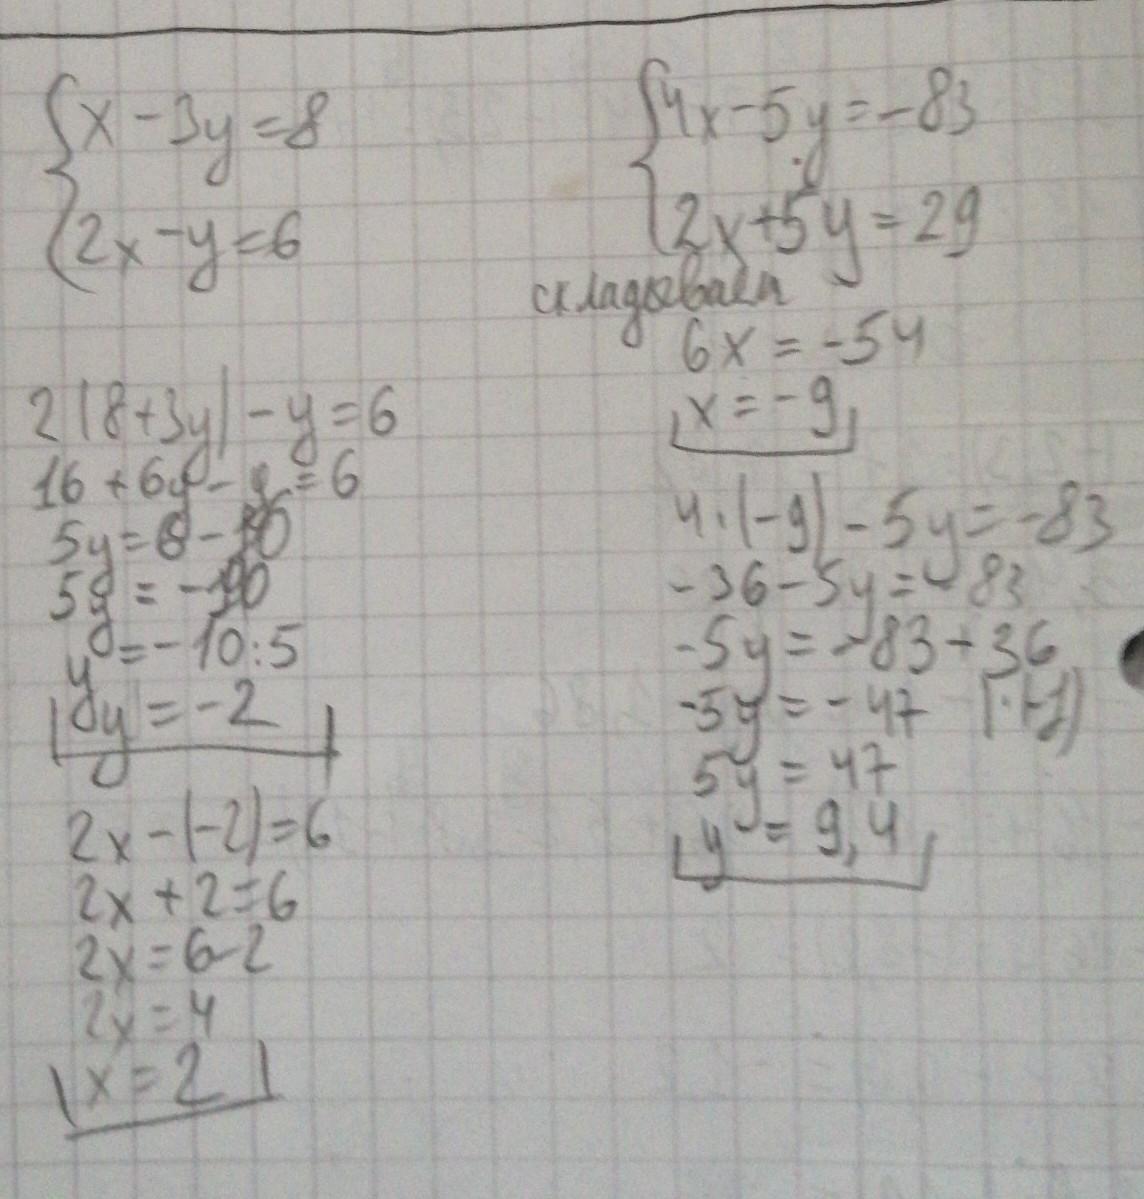 x - 3y = 8
2x - y = 6
2(8+3y) - y = 6
16 + 6y - y = 6
5y = 6 - 16
5y = -10
y = -10:5
y = -2
2x - (-2) = 6
2x + 2 = 6
2x = 6 - 2
2x = 4
x = 2
4x - 5y = -83
2x + 5y = 29
складываем
6x = -54
x = -9
4·(-9) - 5y = -83
-36 - 5y = -83
-5y = -83 + 36
-5y = -47 |·(-1)
5y = 47
y = 9,4